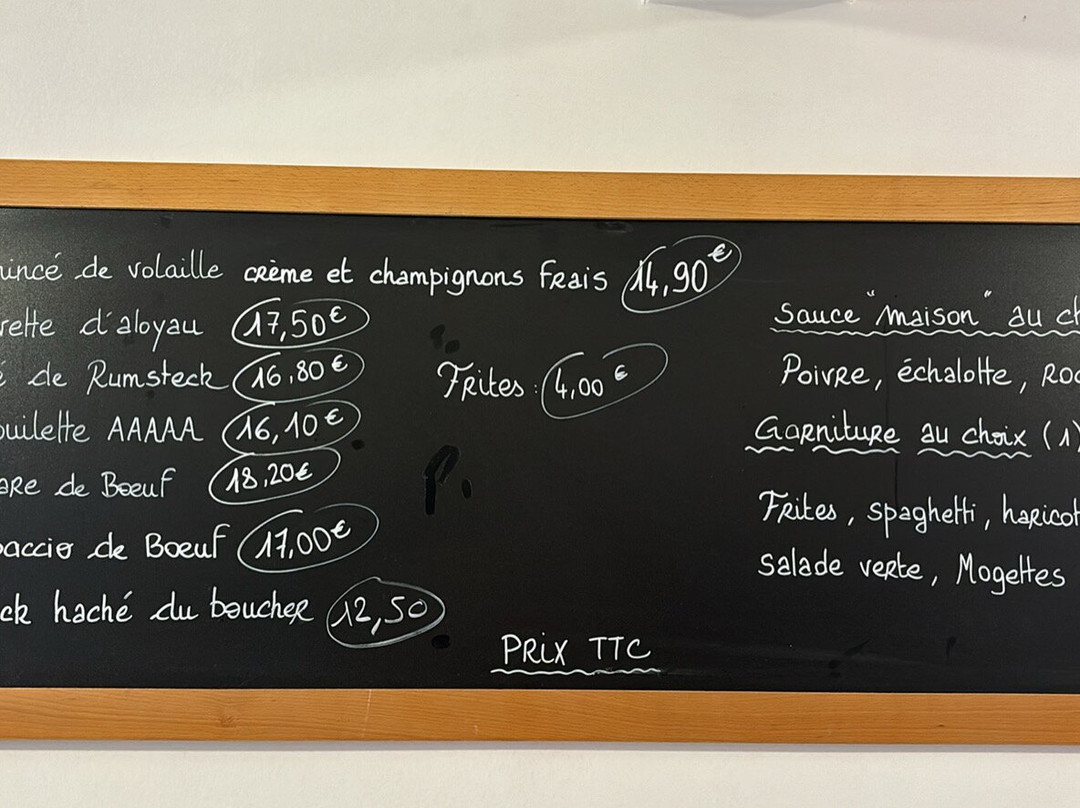 incé de volaille crème et champignons frais 14,90€
rette d'aloyau 17,50€
de Rumsteck 16,80€
ouilette AAAAA 16,10€
are de Boeuf 18,20€
accio de Boeuf 17,00€
ck haché du boucher 12,50
Frites : 4,00€
PRIX TTC
Sauce "maison" au ch
Poivre, échalotte, Roc
Garniture au choix (1)
Frites, spaghetti, haricot
Salade verte, Mogettes